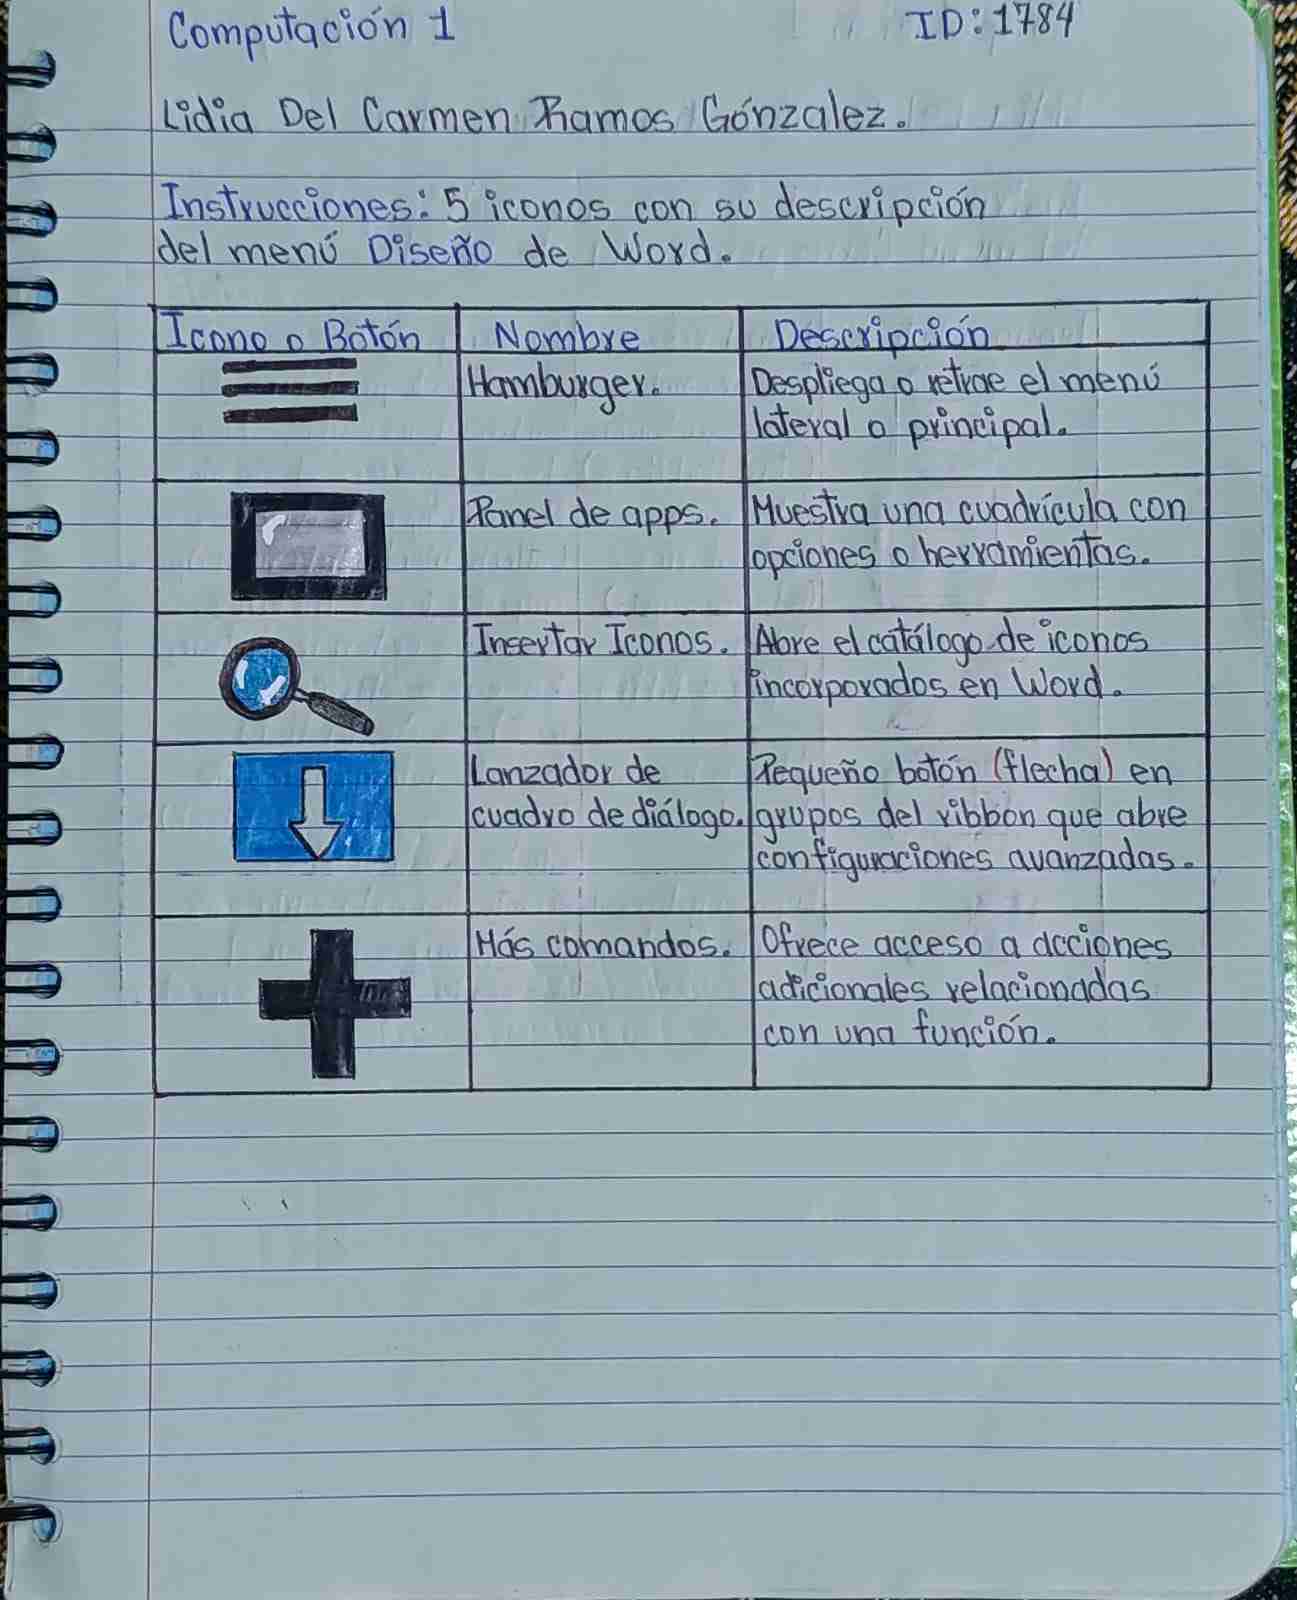 Computación 1 ID: 1784
Lidia Del Carmen Ramos Gónzalez.
Instrucciones: 5 iconos con su descripción
del menú Diseño de Word.
Icono o Botón Nombre Descripción
Hamburger. Despliega o retrae el menú
lateral o principal.
Panel de apps. Muestra una cuadrícula con
opciones o herramientas.
Insertar Iconos. Abre el catálogo de iconos
incorporados en Word.
Lanzador de Pequeño botón (flecha) en
cuadro de diálogo. grupos del ribbon que abre
configuraciones avanzadas.
Más comandos. Ofrece acceso a acciones
adicionales relacionadas
con una función.